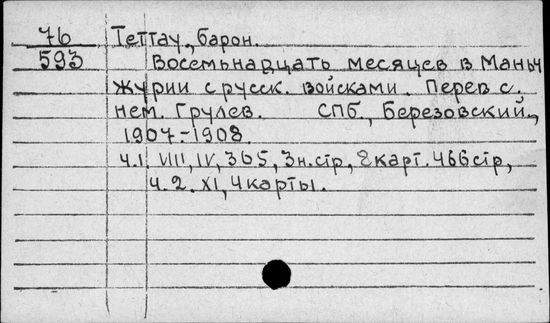 76 Теттау, барон.
593 Восемьнадцать месяцев в Мань
журии с русск. войсками. Перев с.
нем. Грулев. СПб, Березовский,
1907-1908.
ч.1. VIII, IV, 365, 3н.стр, 2карт. 466стр,
ч. 2. XI, 4карты.